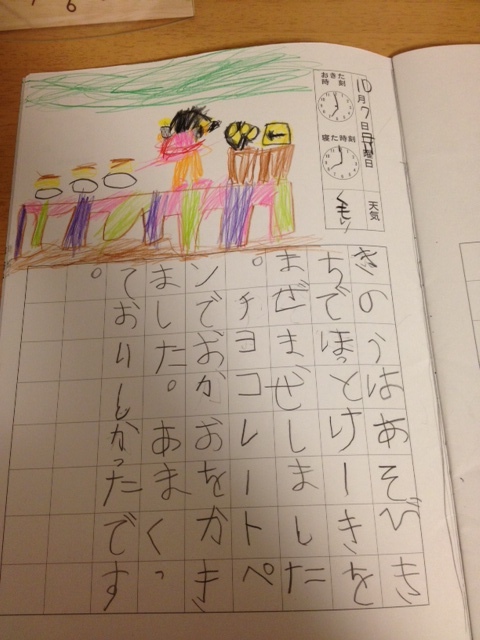 10月7日 曜日
天気
おきた時刻
寝た時刻
くもり
きのうはあそびき
ちでほっとけーきを
まぜまぜしました
。チョコレートペ
ンでおかおをかき
ました。あまくっ
ておいしかったです
。